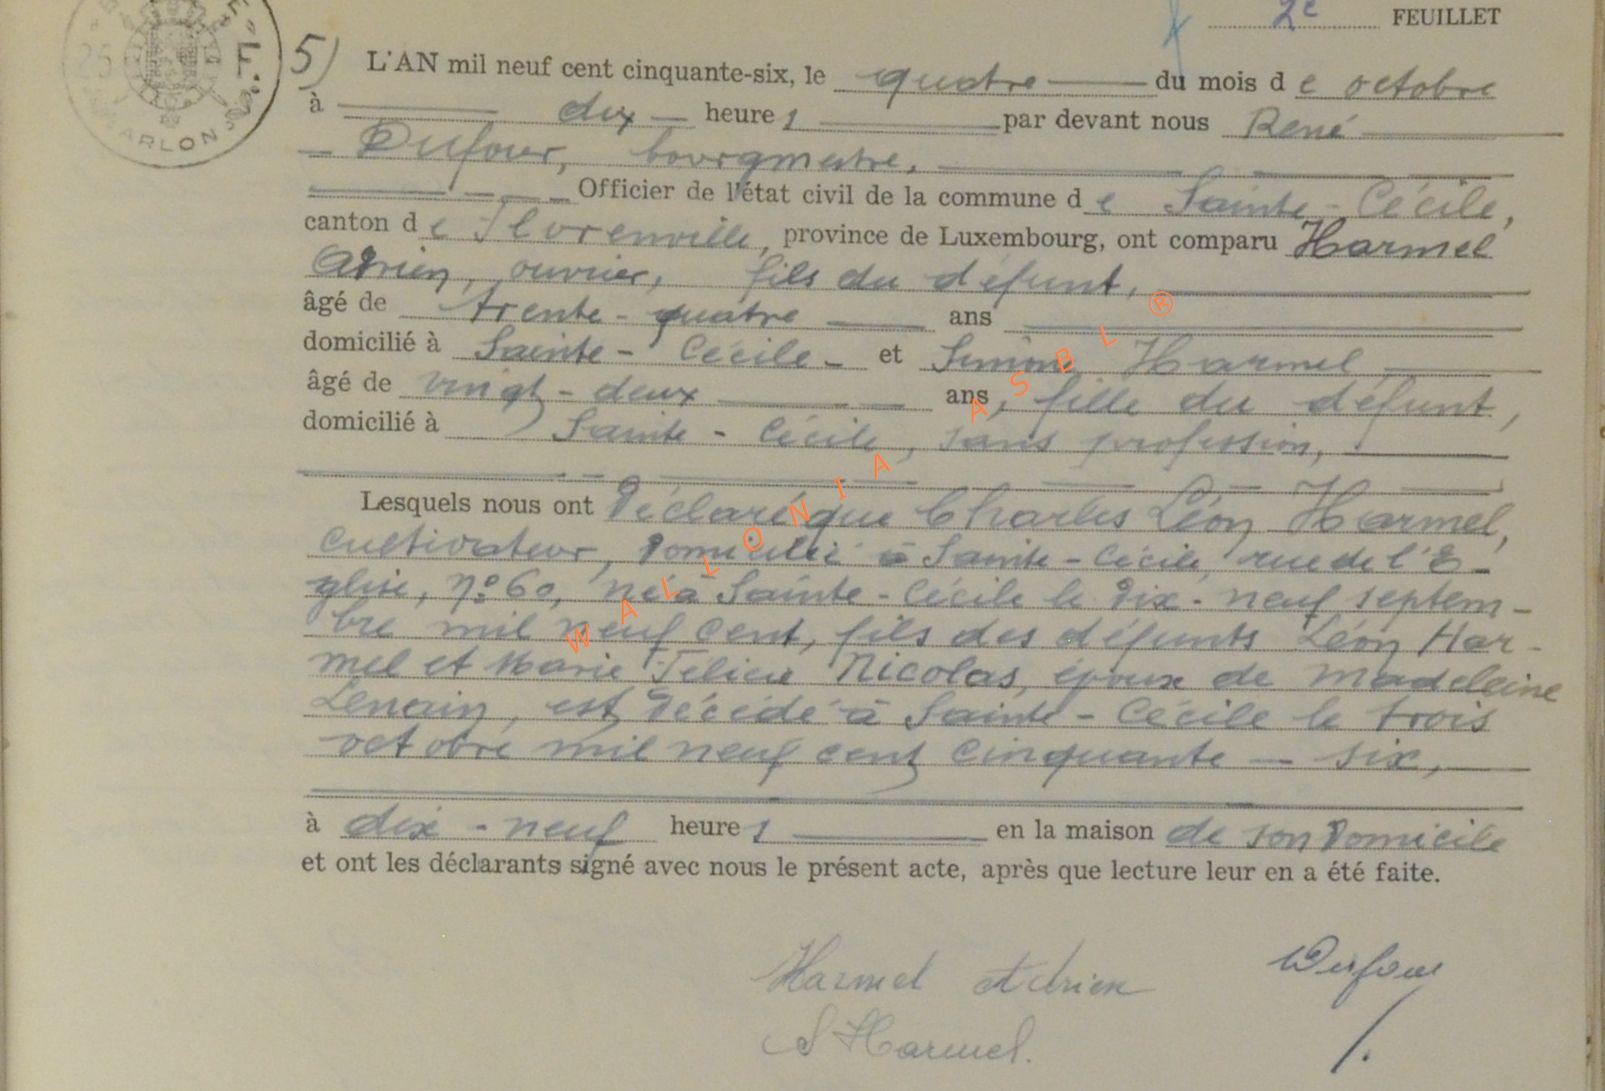 2e FEUILLET
ARLON
5) L'AN mil neuf cent cinquante-six, le quatre du mois d e octobre
à dix heure s par devant nous René
Dufour, bourgmestre,
Officier de l'état civil de la commune d e Sainte-Cécile,
canton d e Florenville, province de Luxembourg, ont comparu Harmel
Adrien, ouvrier, fils du défunt,
âgé de trente-quatre ans
domicilié à Sainte-Cécile et Simone Harmel
âgé de vingt-deux ans, fille du défunt,
domicilié à Sainte-Cécile, sans profession,
Lesquels nous ont déclaré que Charles Léon Harmel,
cultivateur, domicilié à Sainte-Cécile, rue de l'E-
glise, nº 60, né à Sainte-Cécile le dix-neuf septem-
bre mil neuf cent, fils des défunts Léon Har-
mel et Marie Félicie Nicolas, époux de Madeleine
Lenain, est décédé à Sainte-Cécile le trois
octobre mil neuf cent cinquante-six,
à dix-neuf heure s en la maison de son domicile
et ont les déclarants signé avec nous le présent acte, après que lecture leur en a été faite.
Harmel Adrien Dufour
S Harmel.
WALLONIA ASBL ®